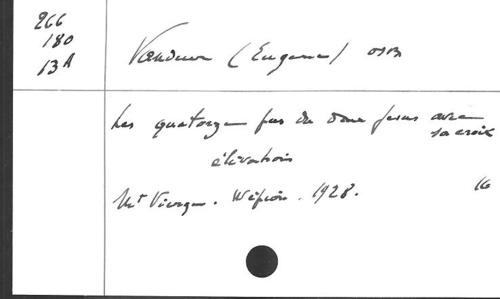 266
180
13A
Vandeur (Eugene) OSB
Les quatorze pas du doux Jesus avec
sa croix
élévations
Mt Vierge. Wépion. 1928.
16